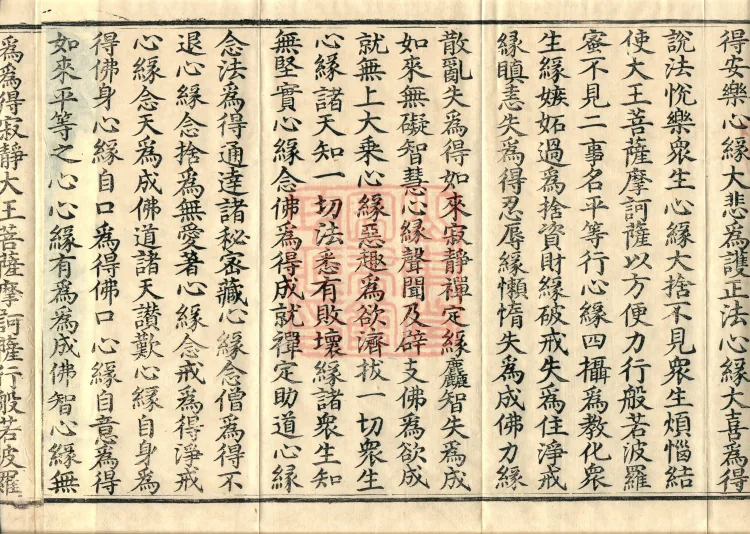 得安樂心緣大悲為護正法心緣大喜為得
說法悅樂衆生心緣大捨不見衆生煩惱結
使大王菩薩摩訶薩以方便力行般若波羅
蜜不見二事名平等行心緣四攝為教化衆
生緣嫉妬過為捨資財緣破戒失為住淨戒
緣瞋恚失為得忍辱緣懶惰失為成佛力緣
散亂失為得如來寂静禪定緣麤智失為成
如來無礙智慧心緣聲聞及辟支佛為欲成
就無上大乘心緣惡趣為欲濟拔一切衆生
心緣諸天知一切法悉有敗壞緣諸衆生知
無堅實心緣念佛為得成就禪定助道心緣
念法為得通達諸秘密藏心緣念僧為得不
退心緣念捨為無愛著心緣念戒為得淨戒
心緣念天為成佛道諸天讃歎心緣自身為
得佛身心緣自口為得佛口心緣自意為得
如來平等之心心緣有為為成佛智心緣無
為為得寂静大王菩薩摩訶薩行般若波羅